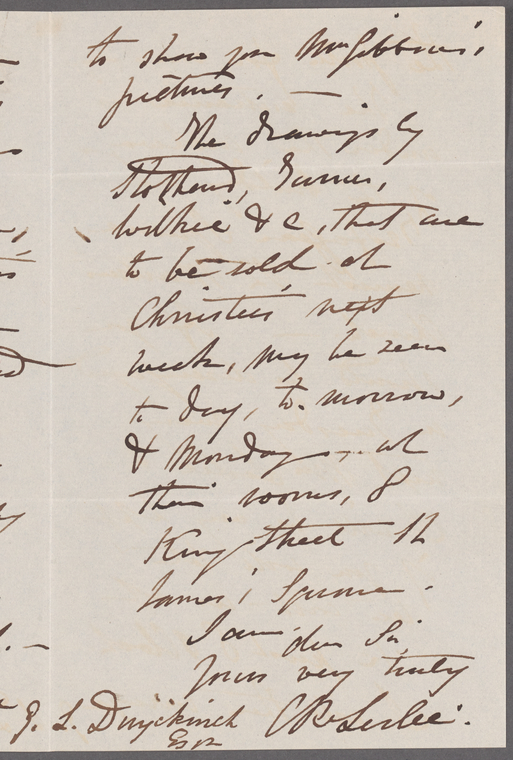 to show you Mr Gibbons's
pictures. —
The drawings by
Stothard, Turner,
Wilkie & c, that are
to be sold at
Christie's next
week, may be seen
to day, to-morrow,
& Monday — at
their rooms, 8
King Street St
James's Square.
I am dear Sir
yours very truly
C R Leslie.
E. L. Duyckinck
Esqr